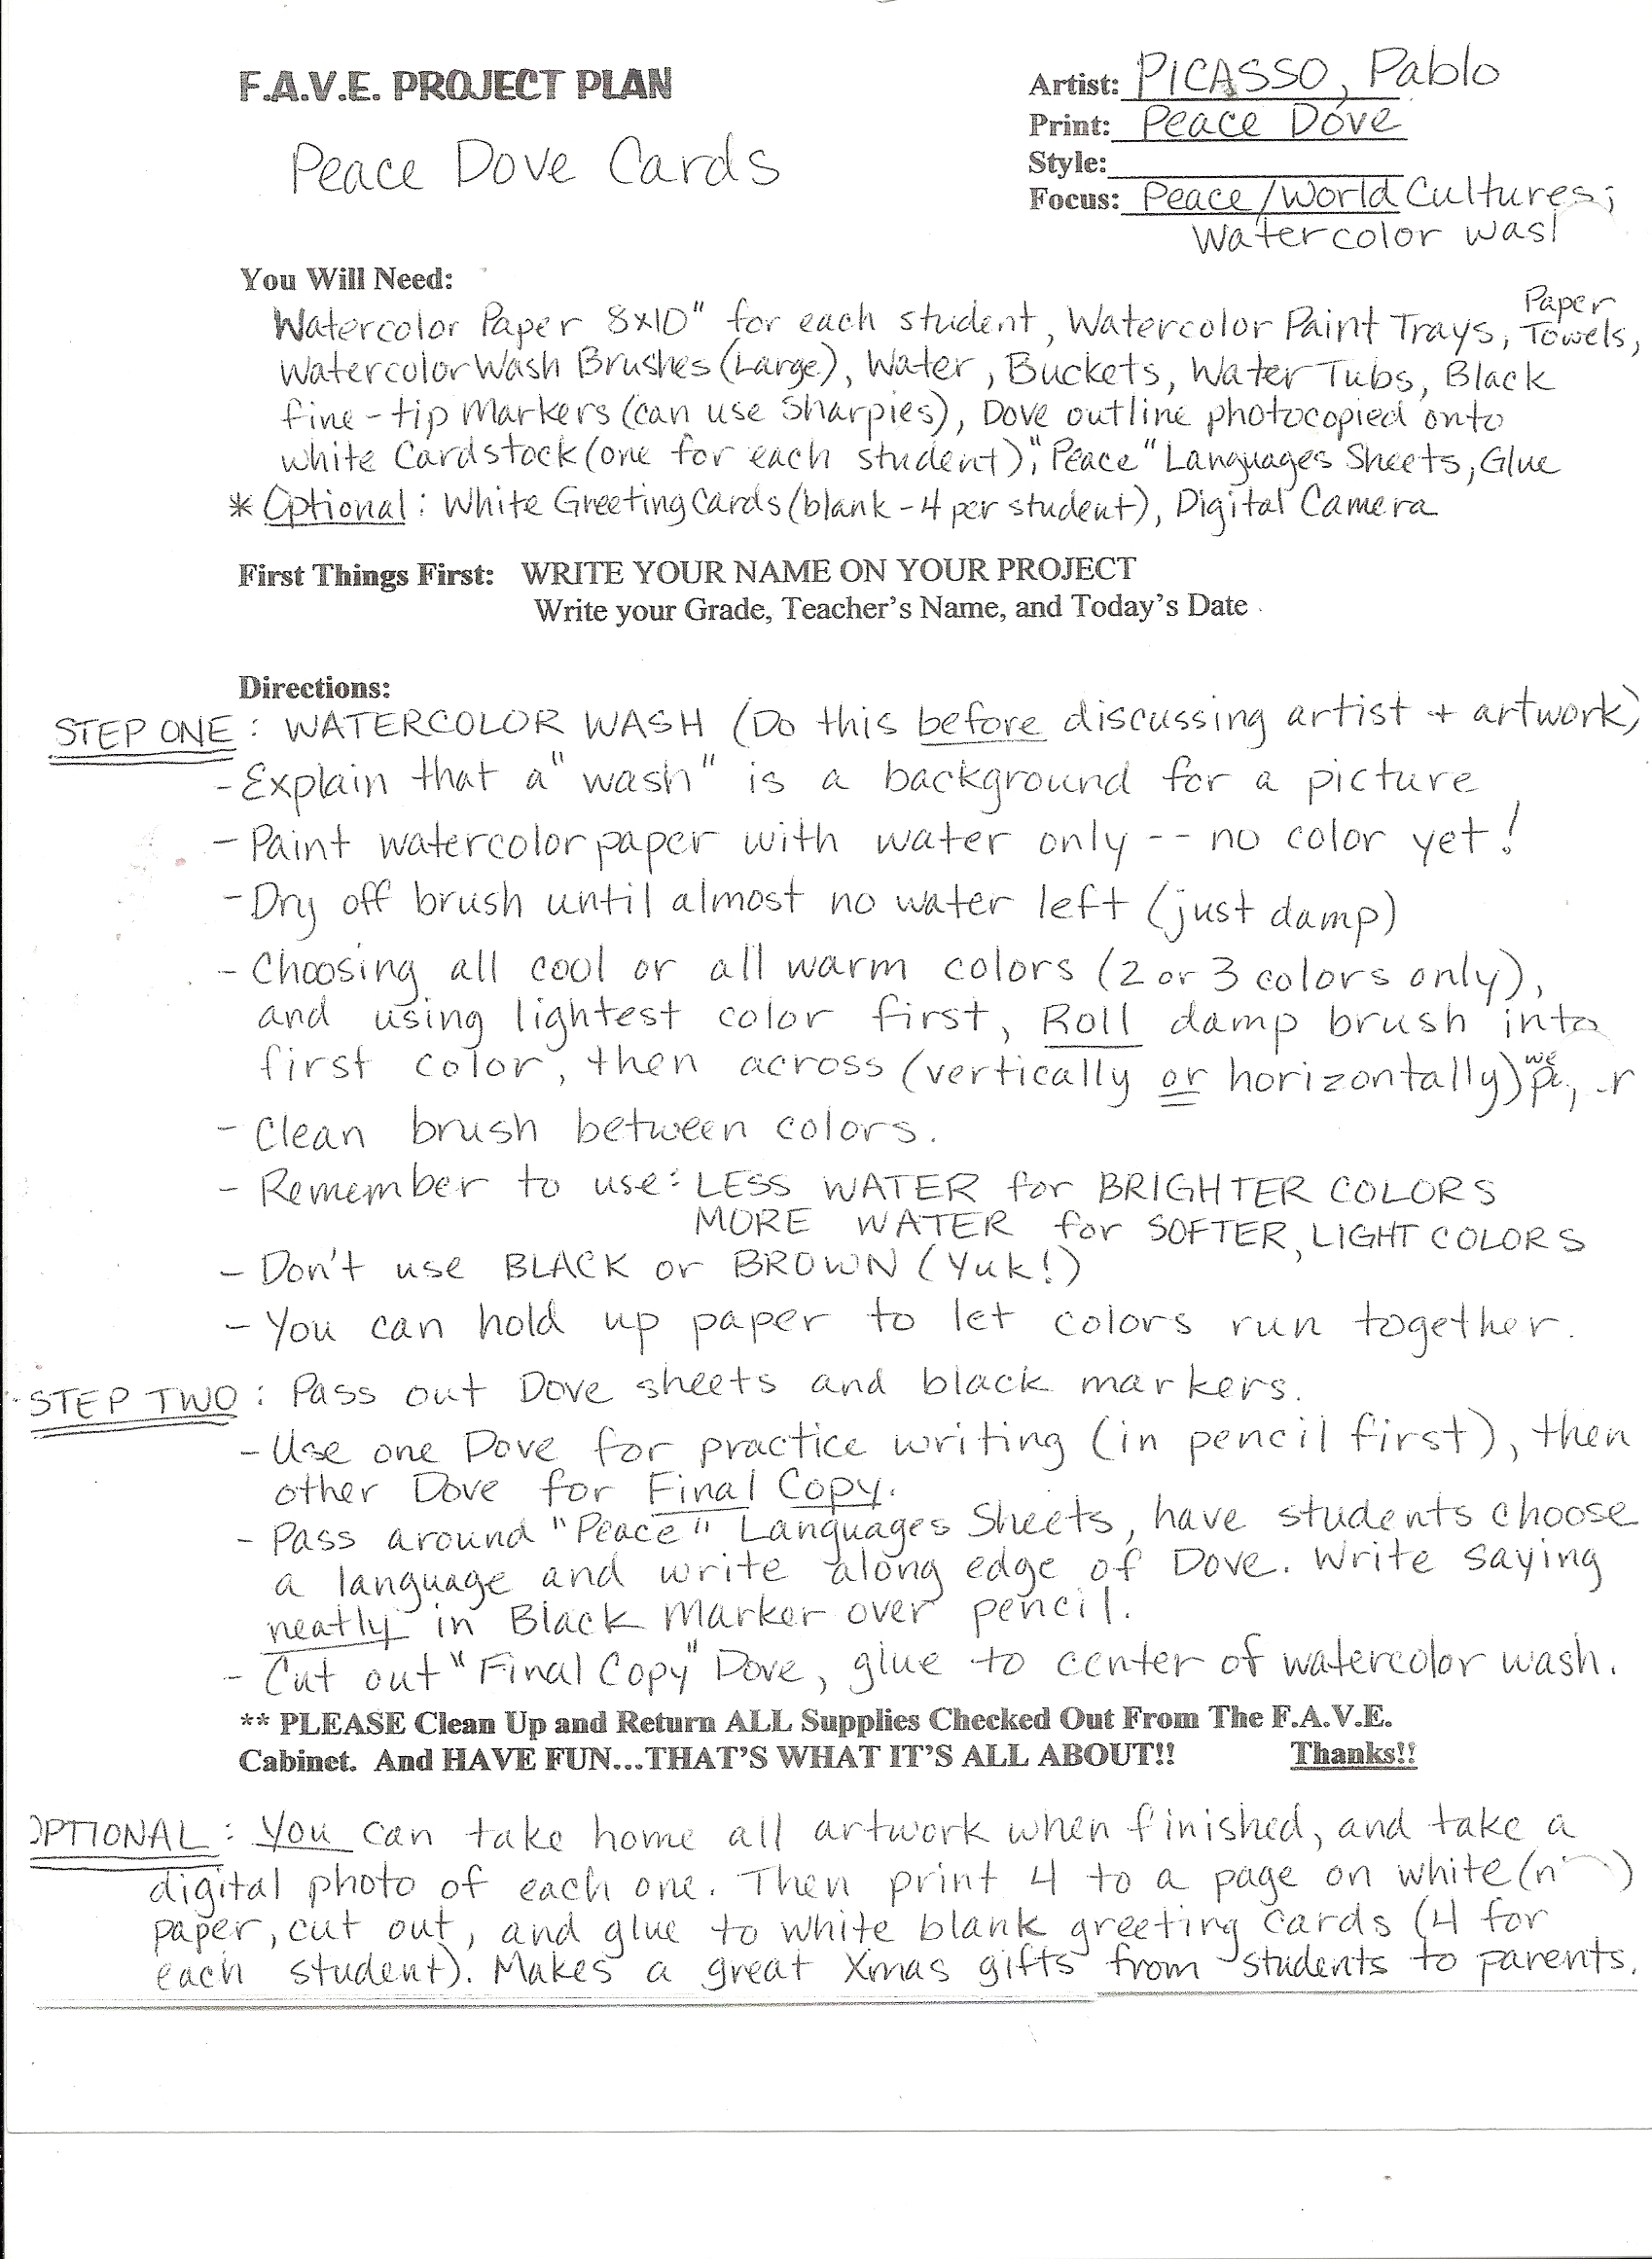 F.A.V.E. PROJECT PLAN
Peace Dove Cards
Artist: PICASSO, Pablo
Print: Peace Dove
Style:
Focus: Peace/World Cultures;
Watercolor
You Will Need:
Watercolor Paper 8x10" for each student, Watercolor Paint Trays, Paper Towels,
Watercolor Wash Brushes (Large), Water, Buckets, Water Tubs, Black
fine-tip Markers (can use Sharpies), Dove outline photocopied onto
white Cardstock (one for each student), "Peace" Languages Sheets, Glue
* Optional: White Greeting Cards (blank - 4 per student), Digital Camera
First Things First: WRITE YOUR NAME ON YOUR PROJECT
Write your Grade, Teacher's Name, and Today's Date
Directions:
STEP ONE: WATERCOLOR WASH (Do this before discussing artist + artwork)
- Explain that a "wash" is a background for a picture
- Paint watercolor paper with water only -- no color yet!
- Dry off brush until almost no water left (just damp)
- Choosing all cool or all warm colors (2 or 3 colors only),
and using lightest color first, Roll damp brush into
first color, then across (vertically or horizontally)
- Clean brush between colors.
- Remember to use: LESS WATER for BRIGHTER COLORS
MORE WATER for SOFTER, LIGHT COLORS
- Don't use BLACK or BROWN (Yuk!)
- You can hold up paper to let colors run together.
STEP TWO: Pass out Dove sheets and black markers.
- Use one Dove for practice writing (in pencil first), then
other Dove for Final Copy.
- Pass around "Peace" Languages Sheets, have students choose
a language and write along edge of Dove. Write saying
neatly in Black Marker over pencil.
- Cut out "Final Copy" Dove, glue to center of watercolor wash.
** PLEASE Clean Up and Return ALL Supplies Checked Out From The F.A.V.E.
Cabinet. And HAVE FUN...THAT'S WHAT IT'S ALL ABOUT!! Thanks!!
OPTIONAL: You can take home all artwork when finished, and take a
digital photo of each one. Then print 4 to a page on white
paper, cut out, and glue to white blank greeting cards (4 for
each student). Makes a great Xmas gifts from students to parents.